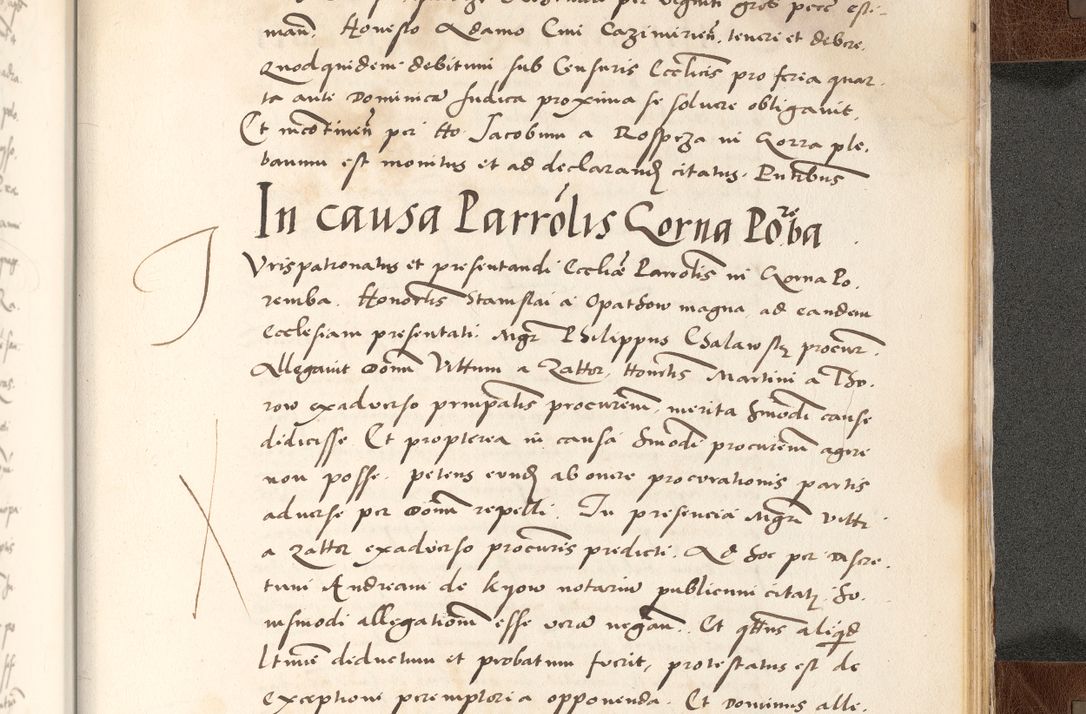 man. Honesto Adamo Civi Cazimirien, tenere et debere,
Quod quidem debitum sub Censuris Ecclicis pro feria quar-
ta ante Dominica Judica proxima se soluere obligauit.
Et incontinen per Ho. Jacobum a Rospcza in Gorra ple-
banum est monitus et ad declarand citatus. Pntibus
In causa Parrolis Gorna Poreba
Juris patronatus et presentandi Ecclie Parrolis in Gorna Po-
remba. Honorlis Stanislai a Opathow magna ad eandem
Ecclesiam presentati. Mgr Philippus Chalawsky procur.
Allegauit Donum Vittum a Zattor, Honorlis Martini a Tho-
row exaduerso principalis procurem, merita hmodi cause
didicisse Et propterea in causa hmodi procurem agere
non posse. petens eund ab onere procurationis partis
aduerse per Donum repelli. In presencia Mgri Vitti
a Zattor exaduerso procuris predicti. Ad hoc per Discre-
tum Andream de Kyow notarium publicum citatj. Hu-
iusmodi allegationem esse vera negan. Et qtenus aliqd
ltime deductum et probatum fuerit, protestatus est de
exceptione peremptoria opponenda. Et Dominus alle-